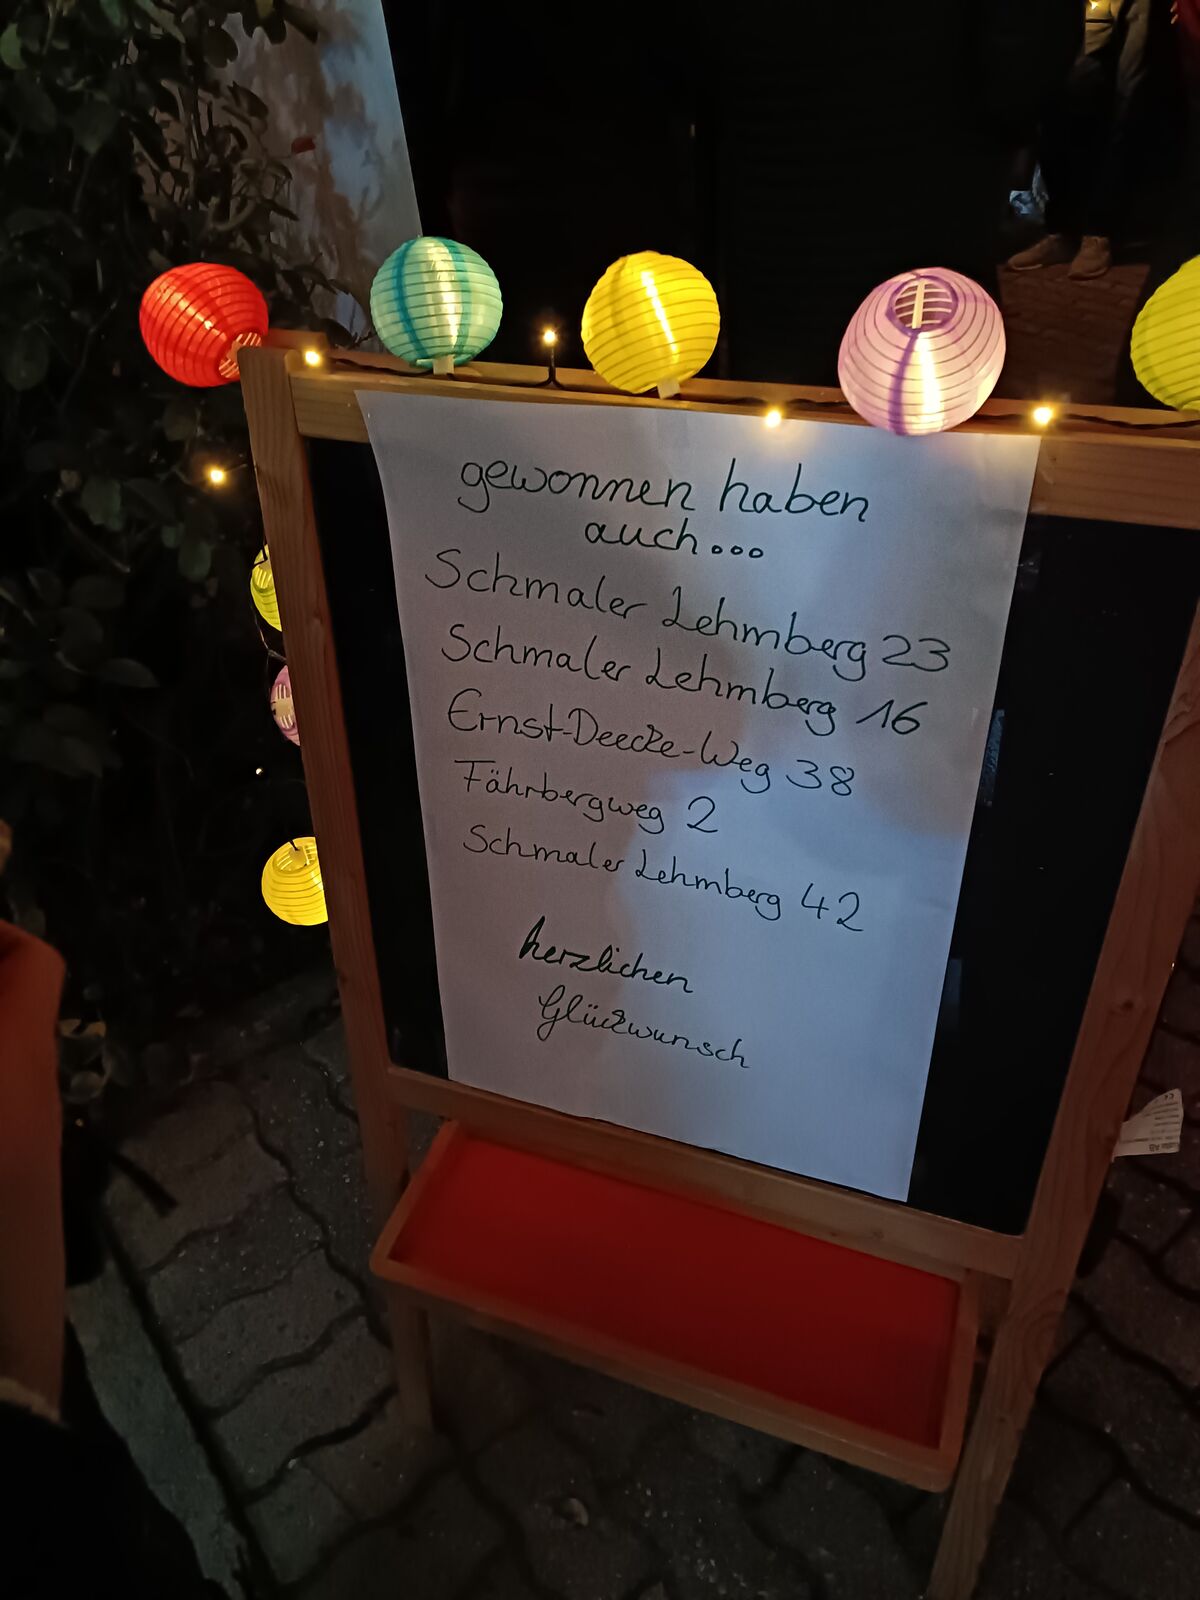 gewonnen haben
auch...
Schmaler Lehmberg 23
Schmaler Lehmberg 16
Ernst-Deecke-Weg 38
Fährbergweg 2
Schmaler Lehmberg 42
herzlichen
Glückwunsch